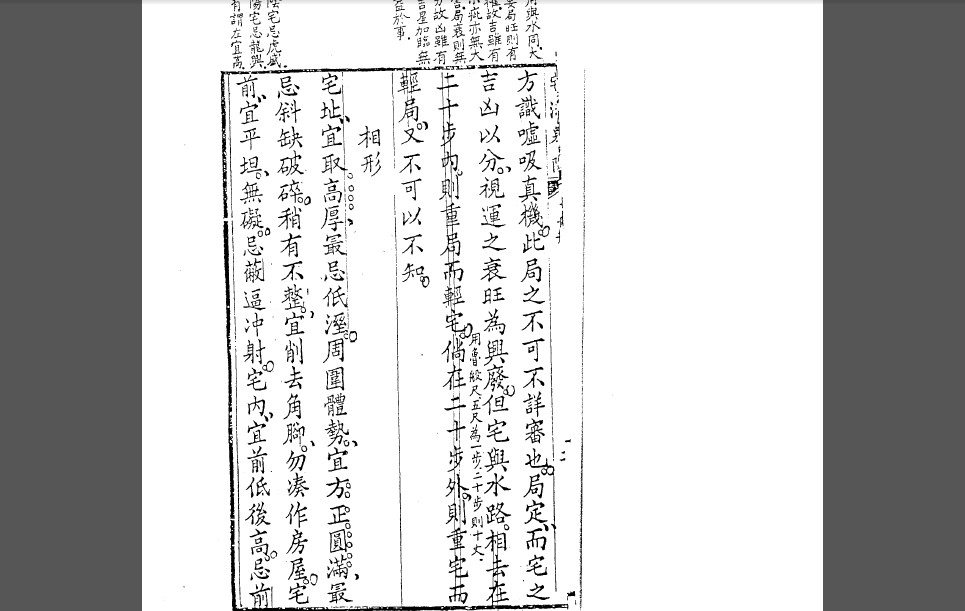 同大
旺則有
故吉雖有
疵亦無大
局衰則無
故凶雖有
吉星加臨無
益於事
陰宅忌虎盛
陽宅忌龍興
有謂左宜高
方識噓吸真機此局之不可不詳審也局定而宅之
吉凶以分視運之衰旺為興廢但宅與水路相去在
二十步內則重局而輕宅
用魯般尺五尺為一步二十步則十丈
倘在二十步外則重宅而
輕局又不可以不知
相形
宅址宜取高厚最忌低溼周圍體勢宜方正圓滿最
忌斜缺破碎稍有不整宜削去角聊勿凑作房屋宅
前宜平坦無礙忌蔽逼冲射宅內宜前低後高忌前